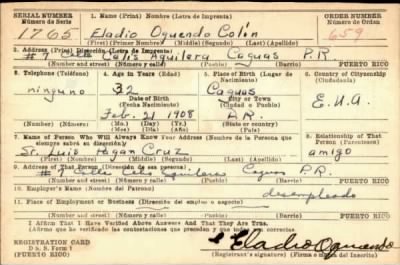 SERIAL NUMBER 1. Name (Print) Nombre (Letra de Imprenta) ORDER NUMBER
Número de Serie Número de Orden
1765 Eladio Oquendo Colón 659
(First) (Primer Nombre) (Middle) (Segundo Nombre) (Last) (Apellido)
2. Address (Print) Dirección (Letra de Imprenta)
#7 Calle Celis Aguilera Caguas P.R.
(Number and street) (Número y calle) (Town) (Pueblo) (Barrio) PUERTO RICO
3. Telephone (Teléfono) 4. Age in Years (Edad) 5. Place of Birth (Lugar de Nacimiento) 6. Country of Citizenship (Ciudadanía)
ninguno 32 Caguas E.U.A.
Date of Birth City or Town
(Fecha de Nacimiento) (Ciudad o Pueblo)
Feb. 21 1908 P.R.
(Number) (Número) (Mo.) (Day) (Día) (Yr.) (Año) (State or country) (Estado o país)
7. Name of Person Who Will Always Know Your Address (Nombre de la Persona que siempre sabrá su dirección) 8. Relationship of That Person (Parentesco)
Sr. Luis Cruz amigo
9. Address of That Person (Dirección de esa persona)
#7 Calle Celis Aguilera Caguas P.R.
(Number and street) (Número y calle) (Town) (Pueblo) (Barrio) PUERTO RICO
10. Employer's Name (Nombre del Patrono)
desempleado
11. Place of Employment or Business (Dirección del empleo o negocio)
(Number and street) (Número y calle) (Town) (Pueblo) (Barrio) PUERTO RICO
I Affirm That I Have Verified Above Answers And That They Are True.
(Afirmo que he verificado las contestaciones que preceden y que todas son ciertas)
REGISTRATION CARD
D. S. Form 1
PUERTO RICO
Eladio Oquendo
(Registrant's signature) (Firma o marca del Inscrito)